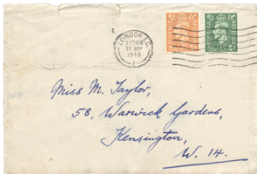 LONDON
1948
Miss M. Taylor,
58, Warwick Gardens,
Kensington,
W. 14.